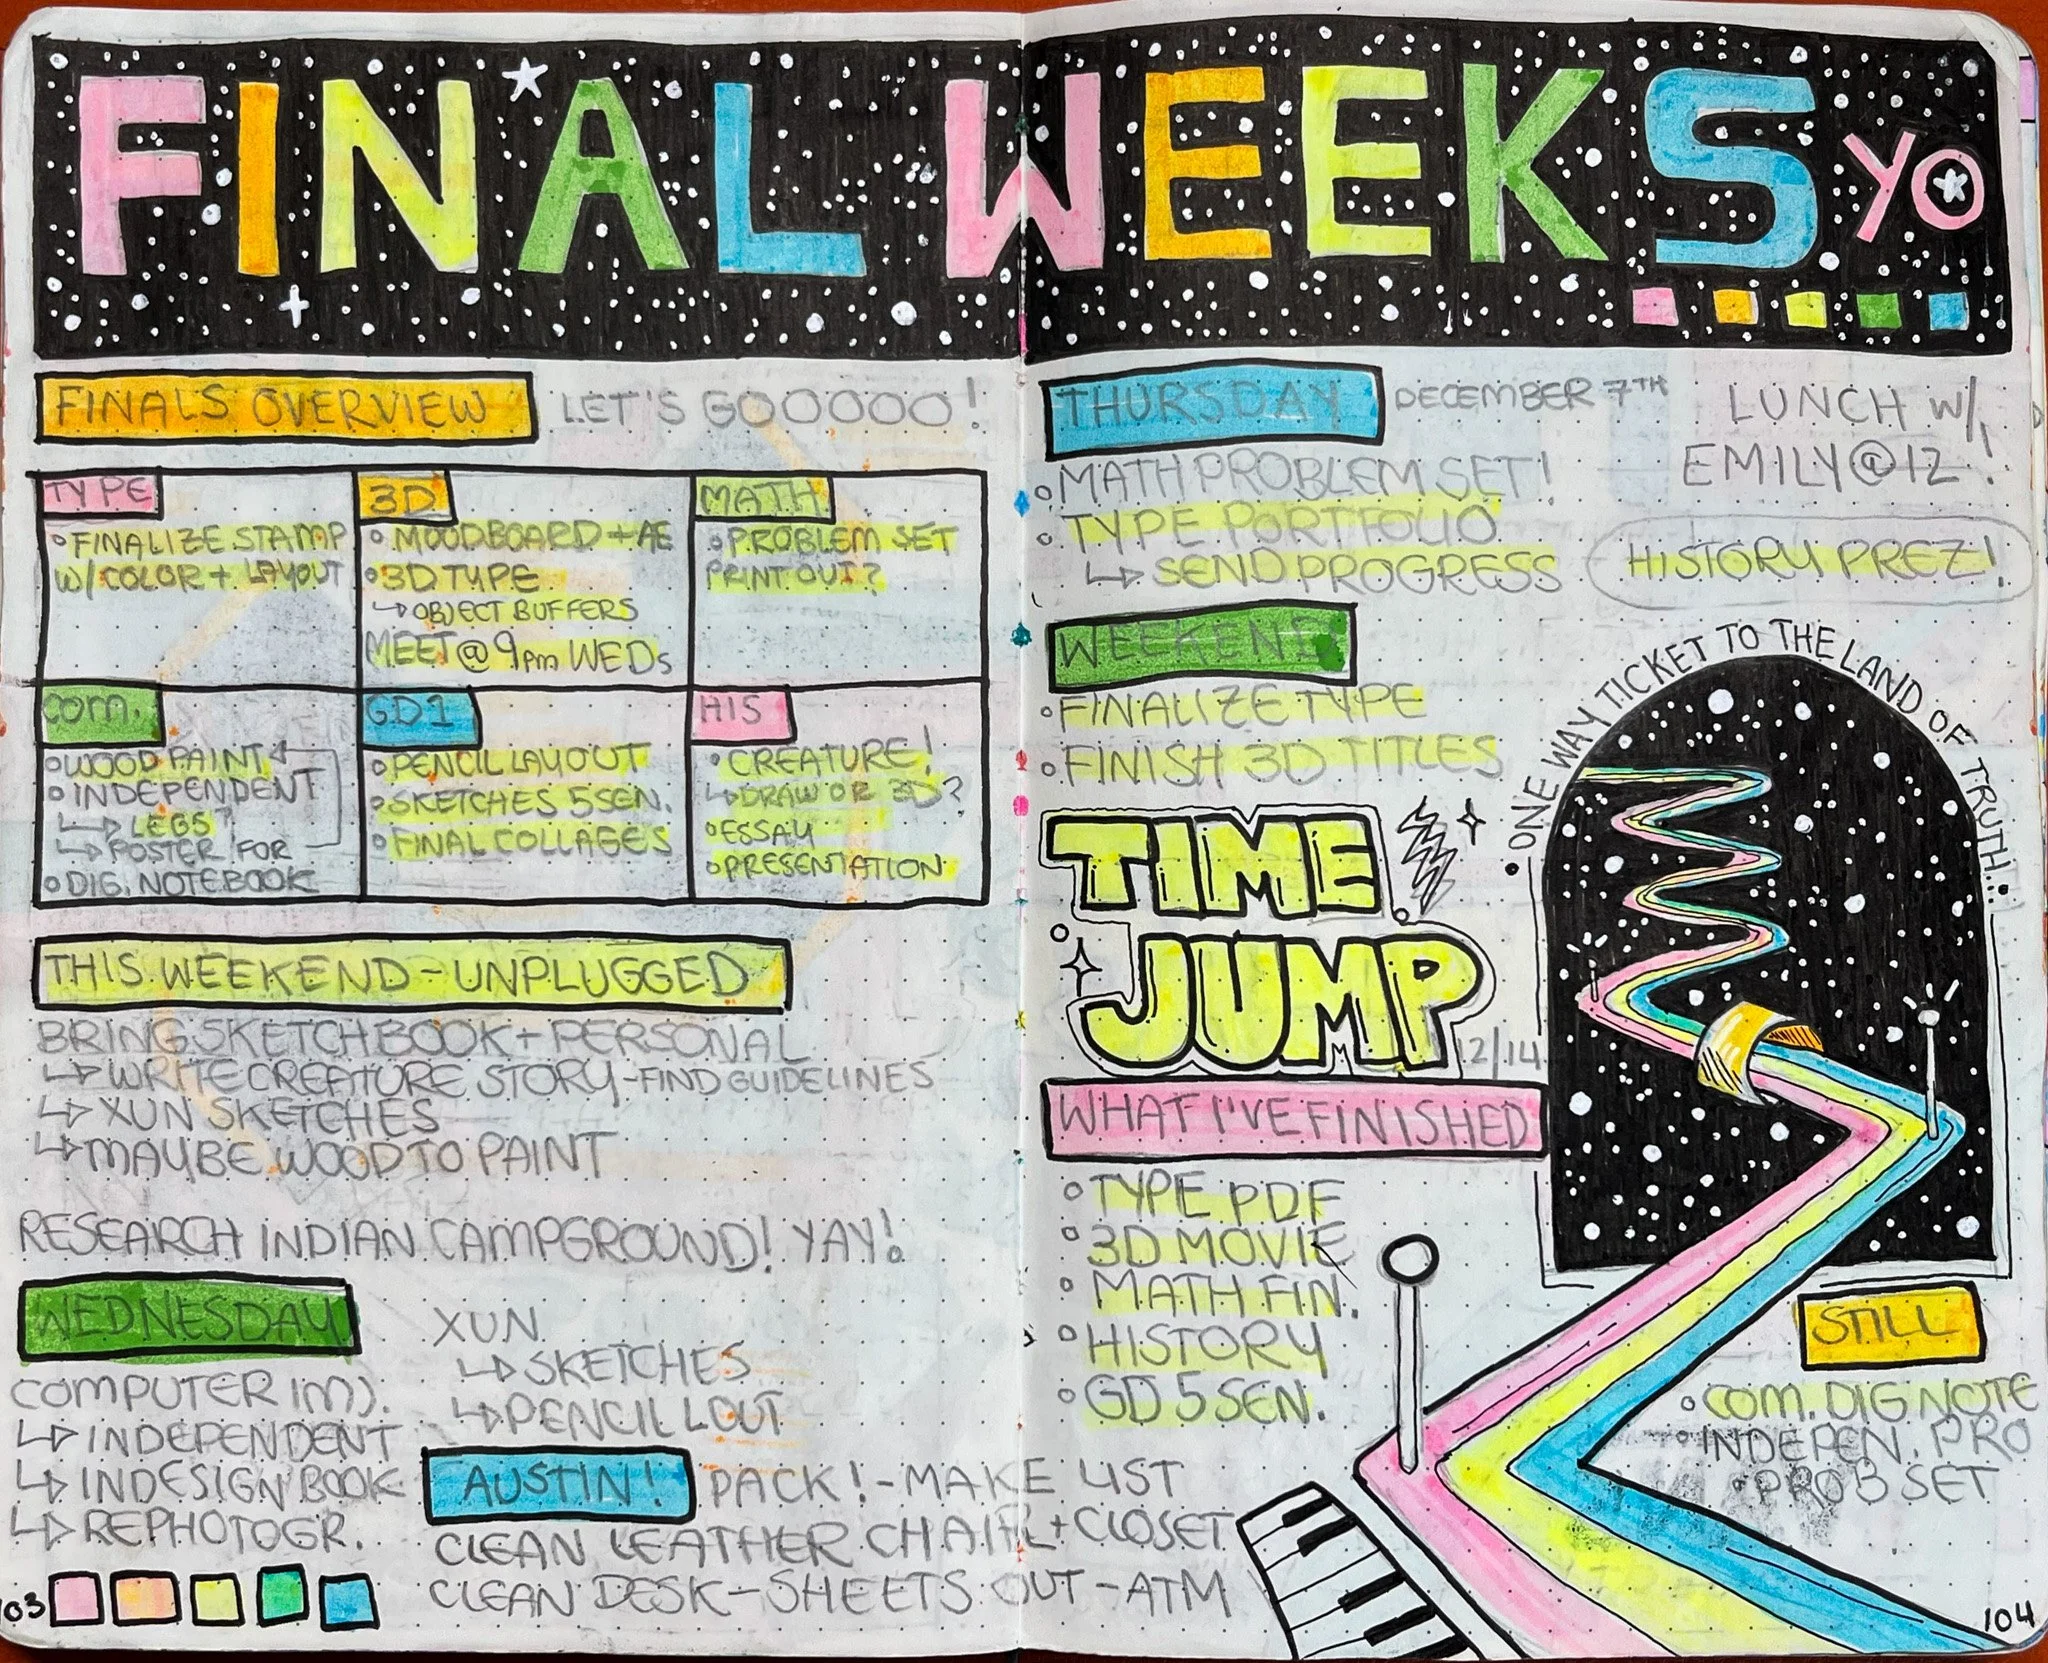 FINAL WEEKS YO
FINALS OVERVIEW LET'S GOOOOO!
TYPE
FINALIZE STAMP
W/ COLOR + LAYOUT
3D
MOODBOARD + AE
3D TYPE
↳ OBJECT BUFFERS
MEET @ 9PM WEDS
MATH
PROBLEM SET
PRINT OUT?
COM.
WOOD PAINT
INDEPENDENT
↳ LEGS?
↳ POSTER FOR
DIG. NOTEBOOK
GD1
PENCIL LAYOUT
SKETCHES 5SEN.
FINAL COLLAGES
HIS
CREATURE!
↳ DRAW OR 3D?
ESSAY
PRESENTATION
THIS WEEKEND - UNPLUGGED
BRING SKETCHBOOK + PERSONAL
↳ WRITE CREATURE STORY - FIND GUIDELINES
↳ XUN SKETCHES
↳ MAYBE WOOD TO PAINT
RESEARCH INDIAN CAMPGROUND! YAY!
WEDNESDAY
COMPUTER (M).
↳ INDEPENDENT
↳ INDESIGN BOOK
↳ REPHOTOGR.
XUN
↳ SKETCHES
↳ PENCIL LOUT
AUSTIN! PACK! - MAKE LIST
CLEAN LEATHER CHAIR + CLOSET
CLEAN DESK - SHEETS OUT - ATM
103
THURSDAY DECEMBER 7TH
LUNCH W/
EMILY @ 12!
MATH PROBLEM SET!
TYPE PORTFOLIO
↳ SEND PROGRESS
HISTORY PREZ!
WEEKEND
FINALIZE TYPE
FINISH 3D TITLES
ONE WAY TICKET TO THE LAND OF TRUTH...
TIME
JUMP
12/14
WHAT I'VE FINISHED
TYPE PDF
3D MOVIE
MATH FIN.
HISTORY
GD 5SEN.
STILL
COM. DIG NOTE
INDEPEN. PRO
PROB SET
104